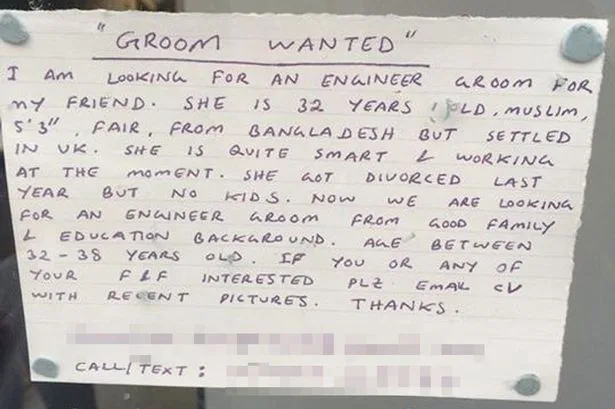 "GROOM WANTED"
I AM LOOKING FOR AN ENGINEER GROOM FOR
MY FRIEND. SHE IS 32 YEARS OLD, MUSLIM,
5'3", FAIR, FROM BANGLADESH BUT SETTLED
IN UK. SHE IS QUITE SMART & WORKING
AT THE MOMENT. SHE GOT DIVORCED LAST
YEAR BUT NO KIDS. NOW WE ARE LOOKING
FOR AN ENGINEER GROOM FROM GOOD FAMILY
& EDUCATION BACKGROUND. AGE BETWEEN
32-38 YEARS OLD. IF YOU OR ANY OF
YOUR F&F INTERESTED PLZ EMAIL CV
WITH RECENT PICTURES. THANKS.
CALL/TEXT: